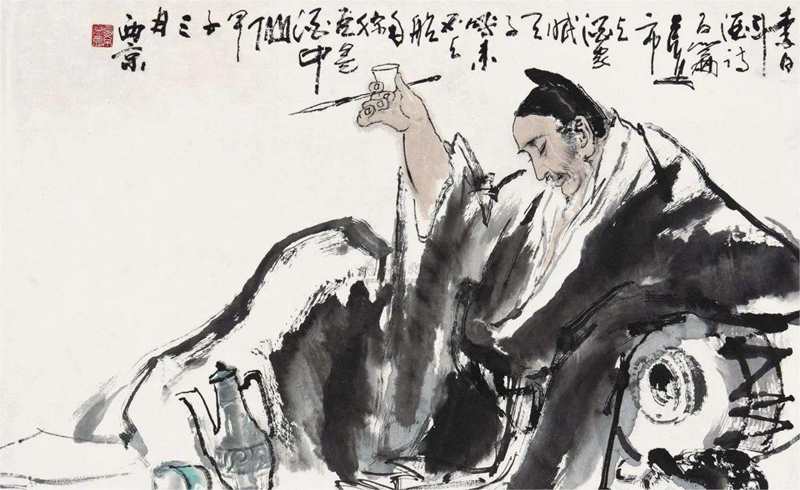 李白
斗
酒诗
百篇
长安
市
上
酒家
眠
天
子
呼来
不上
船
自
称
臣是
酒中
仙
甲
子
三
月
西京